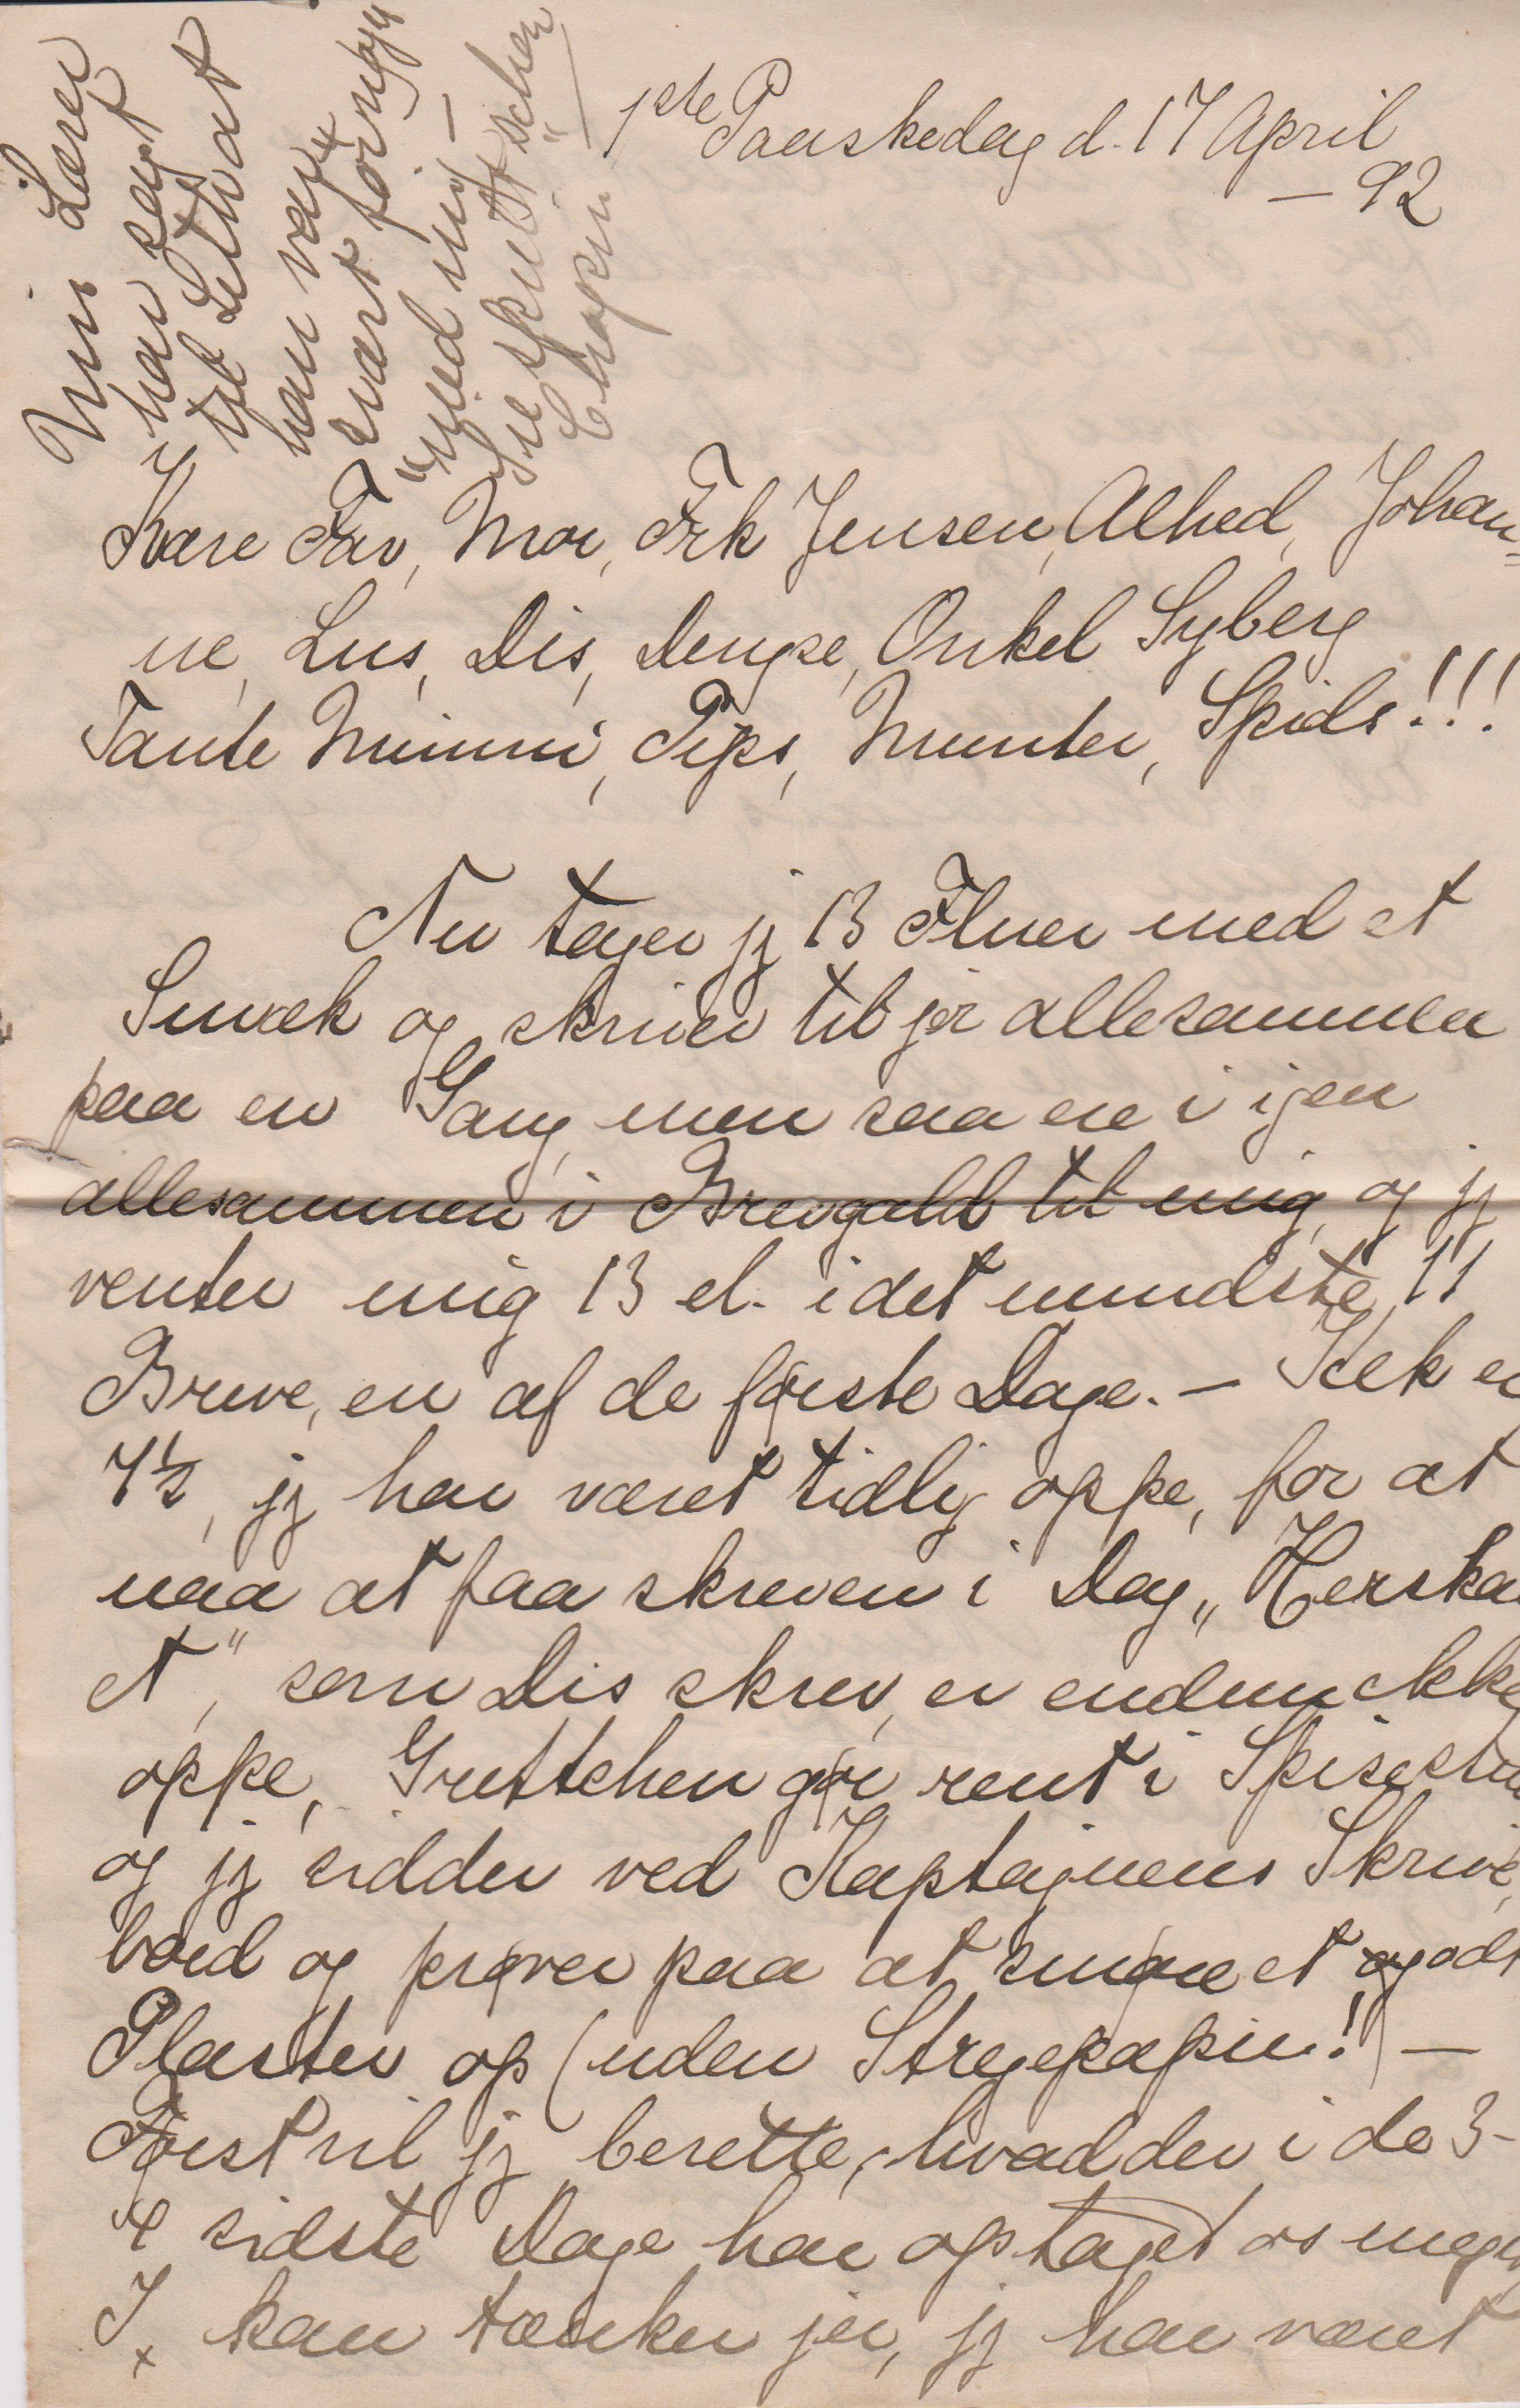 Min Lærer
har sagt
til Ludvat
han var
svært fornøjet
"med mig" —
Sie skulst "schon
Chopin
1ste Paaskedag d. 17 April
— 92
Kære Far, Mor, Frk Jensen, Alhed, Johan-
ne, Lus, Dis, Dengse, Onkel Syberg
Tante Mimmi, Pips, Munter, Spids!!!
Nu tager jg 13 Fluer med et
Smæk og skriver til jer allesammen
paa en Gang, men saa ere i igen
allesammen i Brevgæld til mig, og jg
venter mig 13 el. i det mindste 11
Breve, en af de første Dage. – Kek er
7½, jg har været tidlig oppe, for at
naa at faa skreven i Dag, „Herska
et", som Dis skrev, er endnu ikke
oppe, Grettchen gør rent i Spisestu
og jg sidder ved Kaptajnens Skrive
bord og prøver paa at smøre et godt
Plaster op (uden Stregepapir!) —
Først vil jg berette, hvad der i de 3-
4 sidste Dage har optaget os meget,
I kan tænke jer, jg har været
x